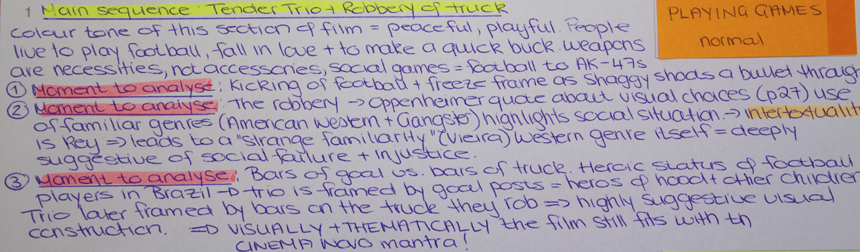 1 Main sequence: Tender Trio + Robbery of truck
PLAYING GAMES
normal
Colour tone of this section of film = peaceful, playful. People
live to play football, fall in love + to make a quick buck. weapons
are necessities, not accessories, social games = football to AK-47s
① Moment to analyse: Kicking of football + freeze frame as Shaggy shoots a bullet through
② Moment to analyse: The robbery → Oppenheimer quote about visual choices (p27) use
of familiar genres (American Western + Gangster) highlights social situation. → intertextualit
is key ⇒ leads to a "strange familiarity" (Vieira) Western genre itself = deeply
suggestive of social failure + injustice.
③ Moment to analyse: Bars of goal vs. bars of truck. Heroic status of football
players in Brazil → trio is framed by goal posts = heros of hood + other children
Trio later framed by bars on the truck they rob ⇒ highly suggestive visual
construction. ⇒ VISUALLY + THEMATICALLY the film still fits with th
CINEMA NOVO mantra!